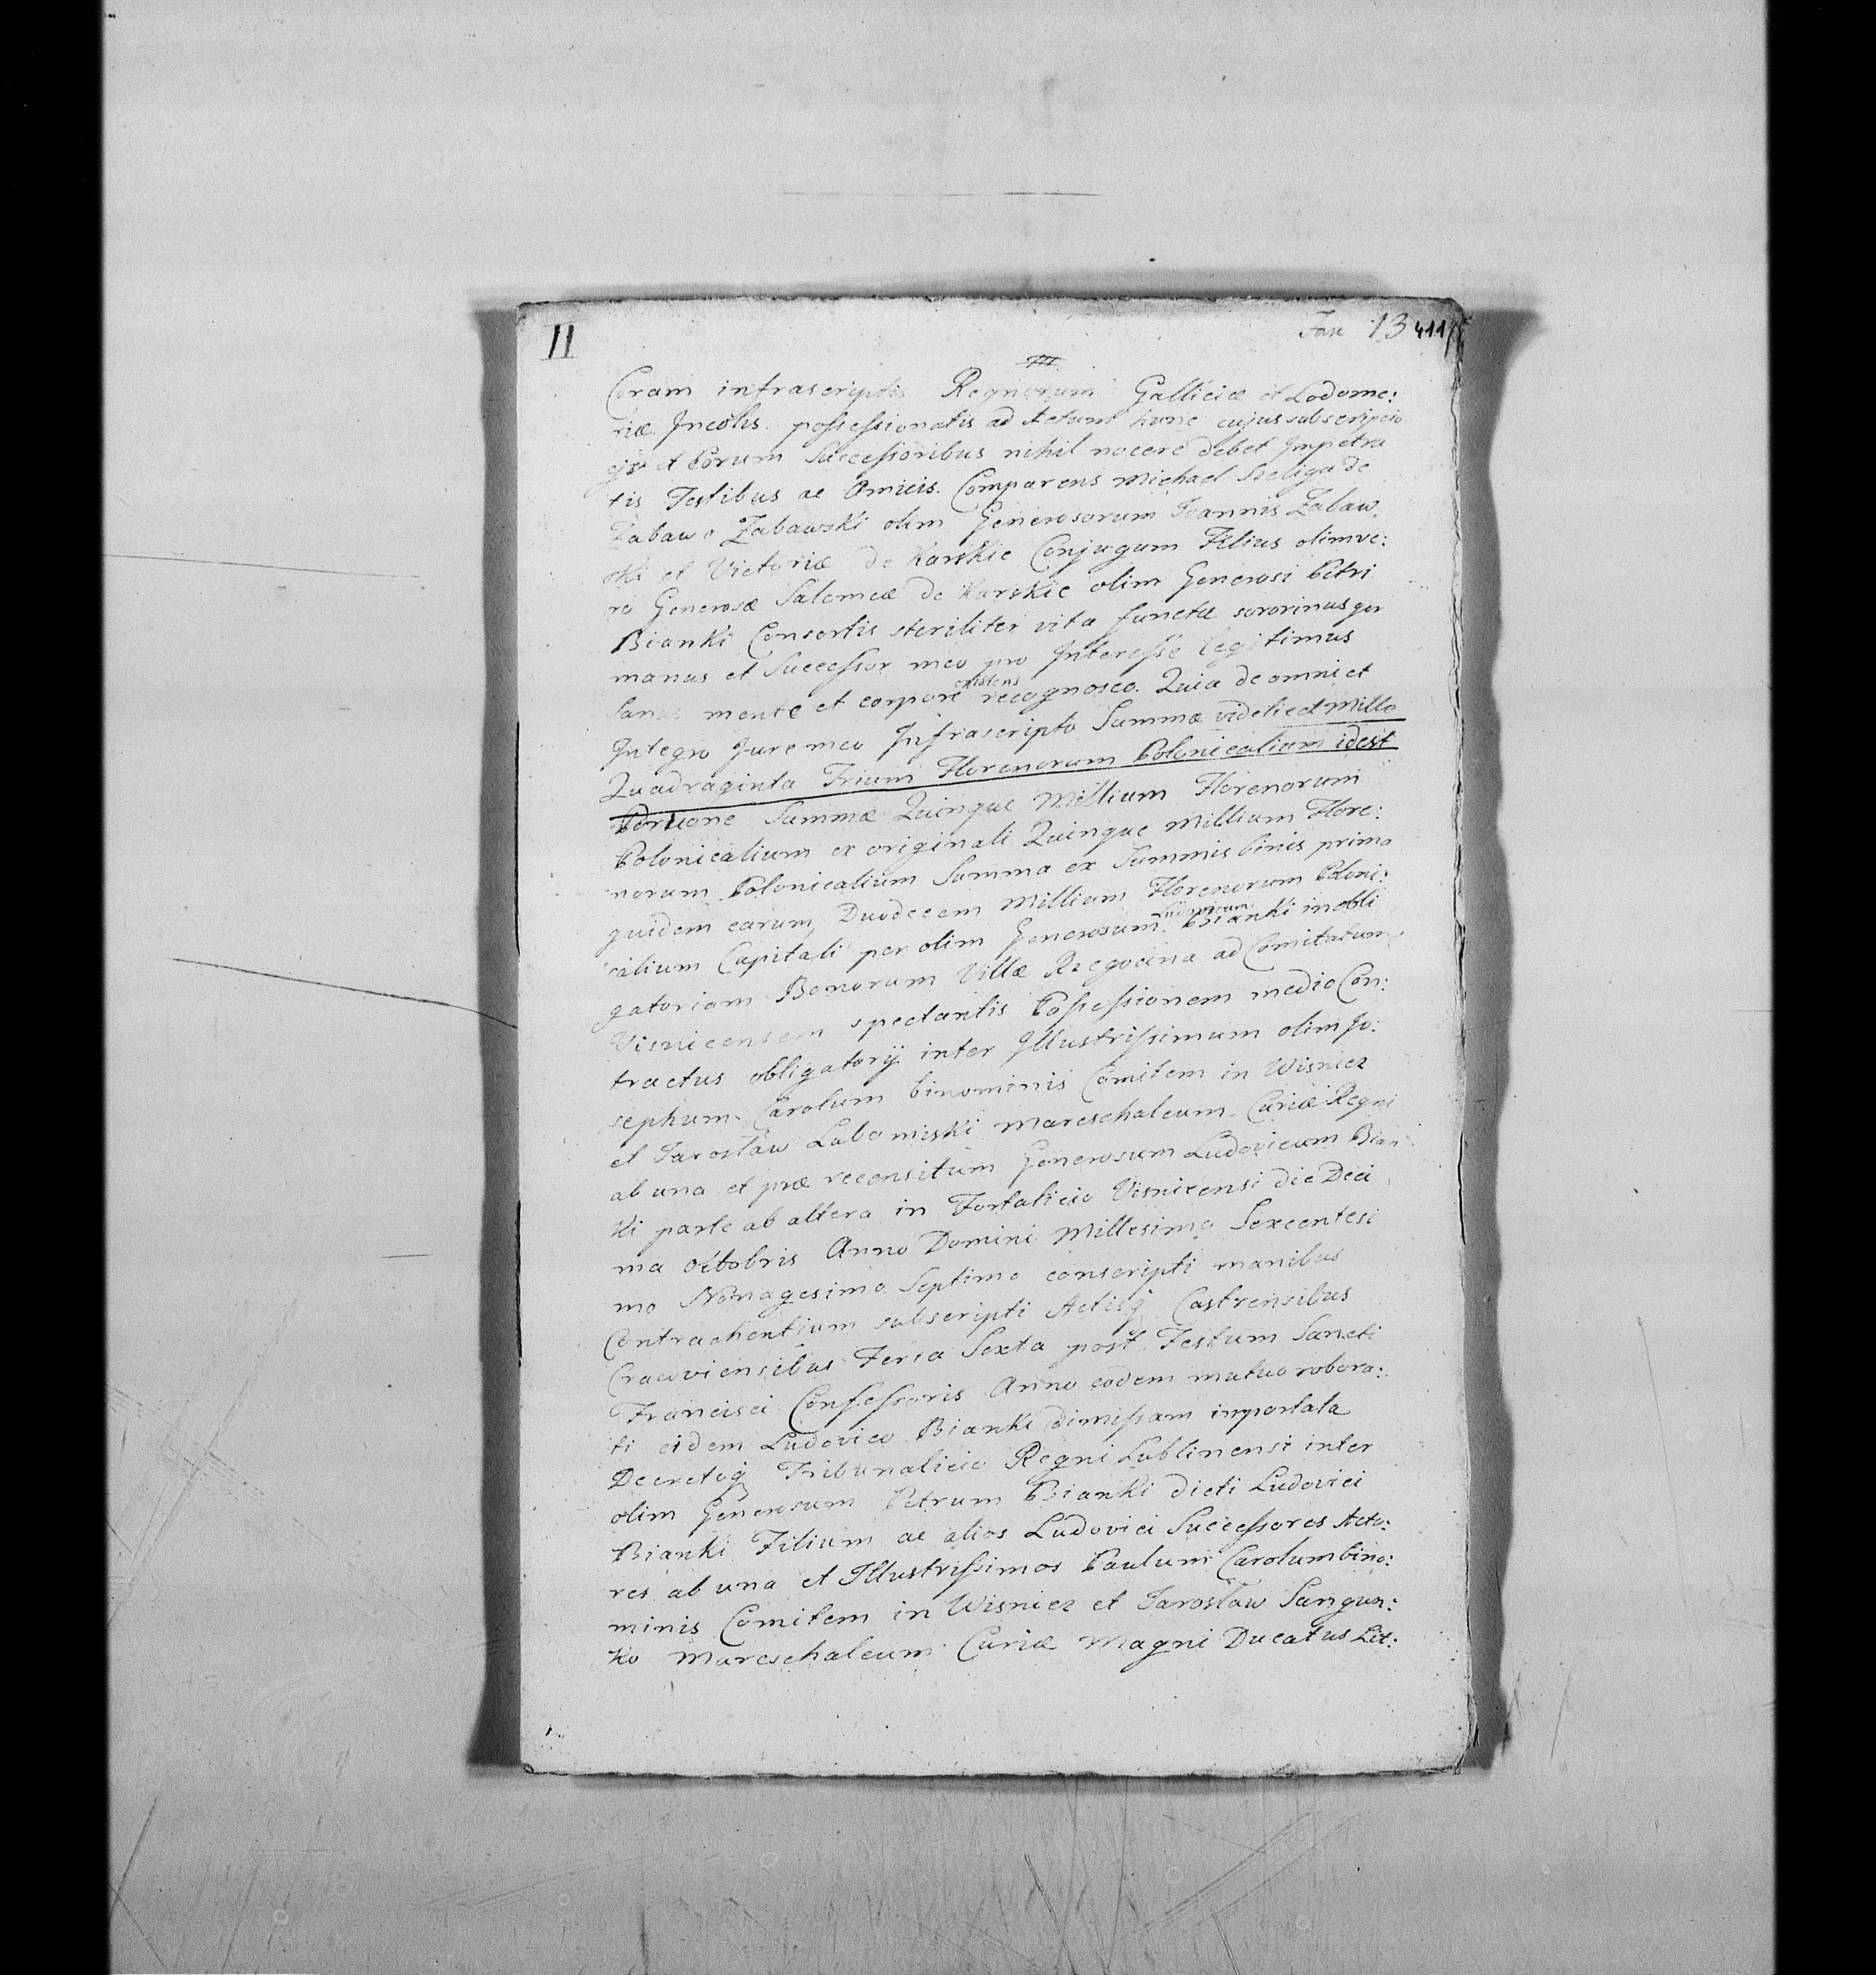 II
Fasc 13 411
III
Coram infrascriptis Regnorum Galliciæ et Lodome:
riæ Incolis possessionatis ad Actum hunc cujus subscriptio
et Eorum Successoribus nihil nocere debet Impetra
tis Testibus ac Amicis. Comparens Michael Szeliga de
Zabawa Zabawski olim Generosorum Joannis Zabaw.
ski et Victoriæ de Karskie Conjugum Filius olim ve:
ro Generosæ Salomeæ de Karskie olim Generosi Petri
Bianki Consortis steriliter vita functæ sororinus ger
manus et Successor meo pro Interesse legitimus
Sanus mente et corpore existens recognosco. Quia de omni et
Integro Jure meo Infrascripto Summæ videlicet Mille
Quadraginta Trium Florenorum Polonicalium idest
Portione Summæ Quinque Millium Florenorum
Polonicalium ex originali Quinque Millium Flore:
norum Polonicalium Summa ex Summis binis prima
quidem earum Duodecem Millium Florenorum Poloni:
calium Capitali per olim Generosum Ludovicum Bianki in obli
gatoriam Bonorum Villæ Rzegocina ad Comitatum
Visnicensem spectantis Possessionem medio Con:
tractus obligatorij inter Illustrissimum olim Jo:
sephum Carolum binominis Comitem in Wisnicz
et Jarosław Lubomiski Mareschalcum Curiæ Regni
ab una et præ recensitum Generosum Ludovicum Bian
ki parte ab altera in Fortalicio Visnicensi die Deci
ma Octobris Anno Domini Millesimo Sexcentesi
mo Nonagesimo Septimo conscripti manibus
Contrahentium subscripti Actisq Castrensibus
Cracoviensibus Feria Sexta post Festum Sancti
Francisci Confessoris Anno eodem mutuo robora:
ti eidem Ludovico Bianki dimissam importata
Decretoq Tribunalicio Regni Lublinensi inter
olim Generosum Petrum Bianki dicti Ludovici
Bianki Filium ac alios Ludovici Successores Acto:
res ab una et Illustrissimos Paulum Carolum bino:
minis Comitem in Wisnicz et Jarosław Sangus:
ko Mareschalcum Curiæ Magni Ducatus Lit: